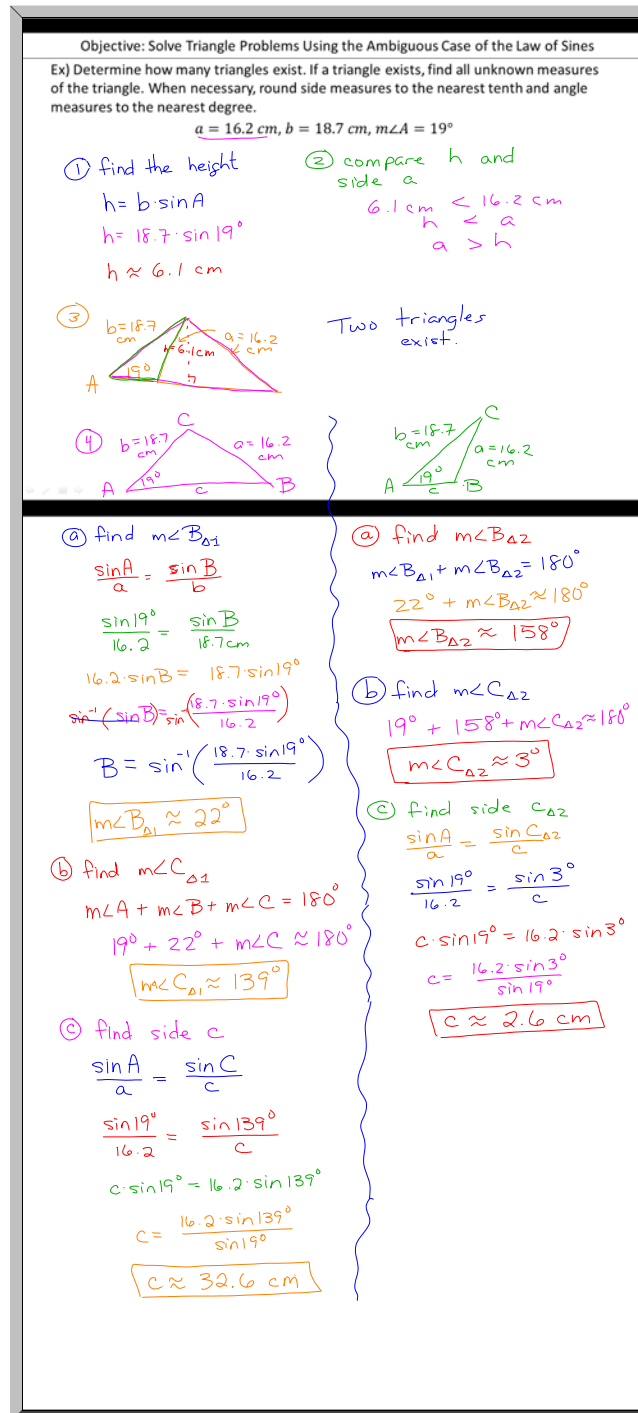 Objective: Solve Triangle Problems Using the Ambiguous Case of the Law of Sines
Ex) Determine how many triangles exist. If a triangle exists, find all unknown measures
of the triangle. When necessary, round side measures to the nearest tenth and angle
measures to the nearest degree.
a = 16.2 cm, b = 18.7 cm, m∠A = 19°
① find the height
h = b·sinA
h = 18.7·sin 19°
h ≈ 6.1 cm
② compare h and
side a
6.1 cm < 16.2 cm
h < a
a > h
③
b = 18.7
cm
a = 16.2
cm
h=6.1cm
19°
A
Two triangles
exist.
④
C
b = 18.7
cm
a = 16.2
cm
19°
A
c
B
C
b = 18.7
cm
a = 16.2
cm
19°
A
c
B
ⓐ find m∠B△1
sinA/a = sin B/b
sin19°/16.2 = sin B/18.7cm
16.2·sinB = 18.7·sin19°
sin⁻¹(sin B) = sin⁻¹(18.7·sin19°/16.2)
B = sin⁻¹(18.7·sin19°/16.2)
m∠B△1 ≈ 22°
ⓑ find m∠C△1
m∠A + m∠B + m∠C = 180°
19° + 22° + m∠C ≈ 180°
m∠C△1 ≈ 139°
ⓒ find side c
sin A/a = sin C/c
sin19°/16.2 = sin 139°/c
c·sin19° = 16.2·sin 139°
c = 16.2·sin139°/sin19°
c ≈ 32.6 cm
ⓐ find m∠B△2
m∠B△1 + m∠B△2 = 180°
22° + m∠B△2 ≈ 180°
m∠B△2 ≈ 158°
ⓑ find m∠C△2
19° + 158° + m∠C△2 ≈ 180°
m∠C△2 ≈ 3°
ⓒ find side c△2
sinA/a = sin C△2/c
sin 19°/16.2 = sin 3°/c
c·sin19° = 16.2·sin3°
c = 16.2·sin3°/sin 19°
c ≈ 2.6 cm